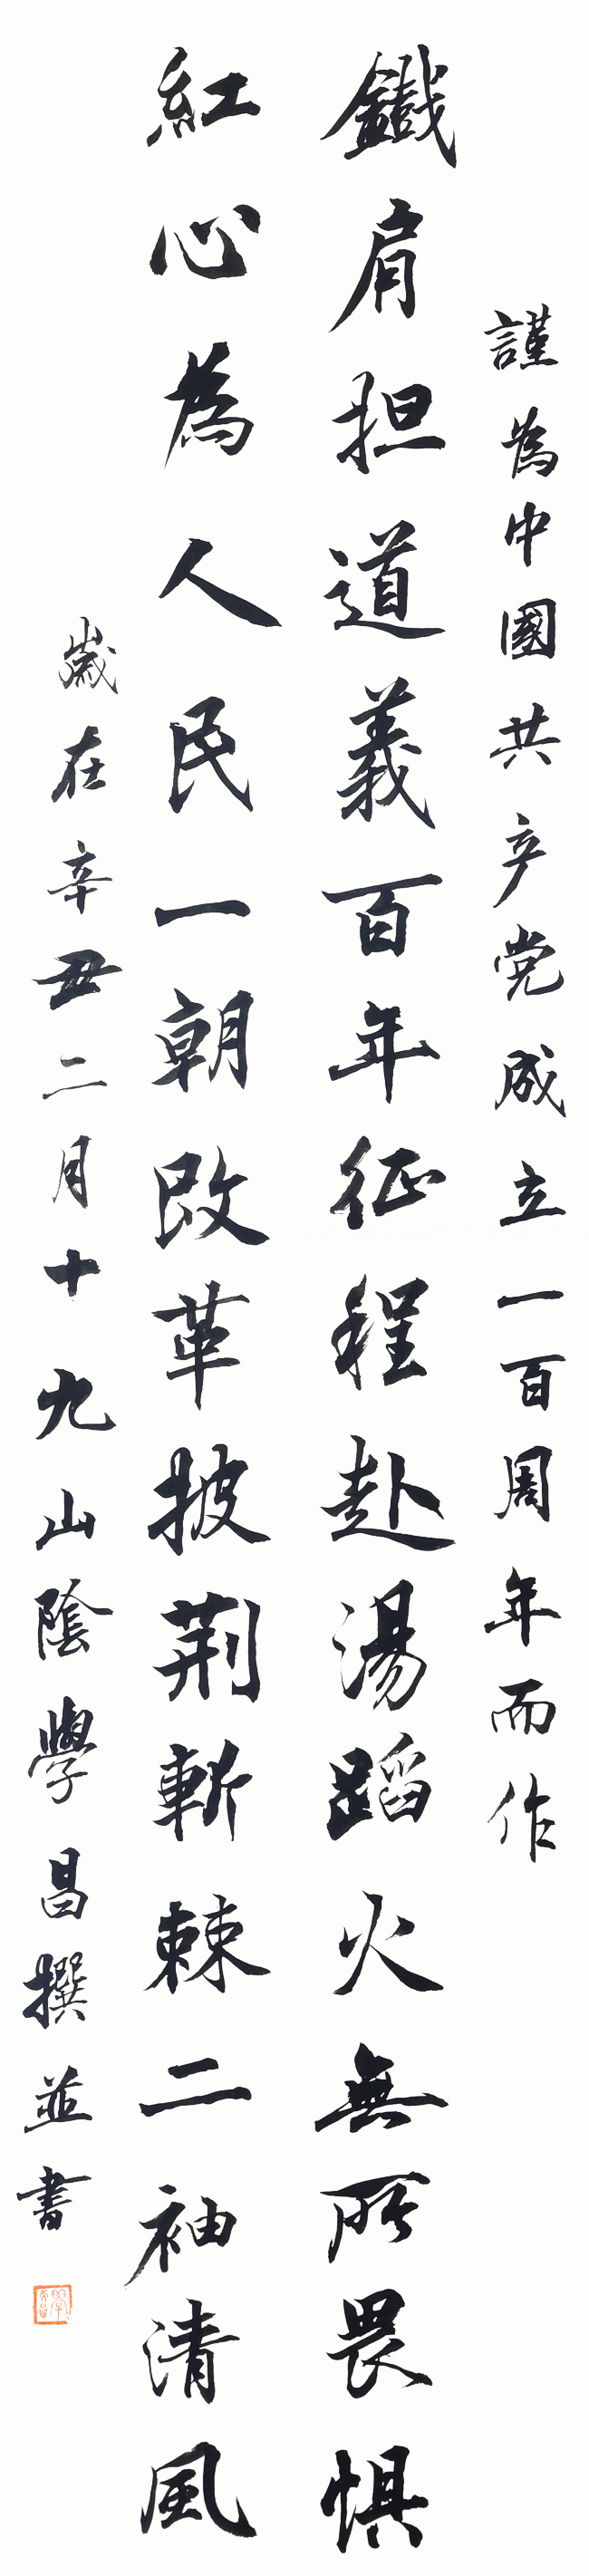 謹為中國共产党成立一百周年而作
鐵肩担道義百年征程赴湯蹈火無所畏惧
紅心為人民一朝改革披荆斬棘二袖清風
歲在辛丑二月十九山陰學昌撰並書